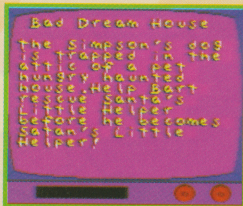 Bad Dream House
The Simpson's dog
is trapped in the
attic of a pet
hungry haunted
house. Help Bart
rescue Santa's
Little Helper
before he becomes
Satan's Little
Helper!